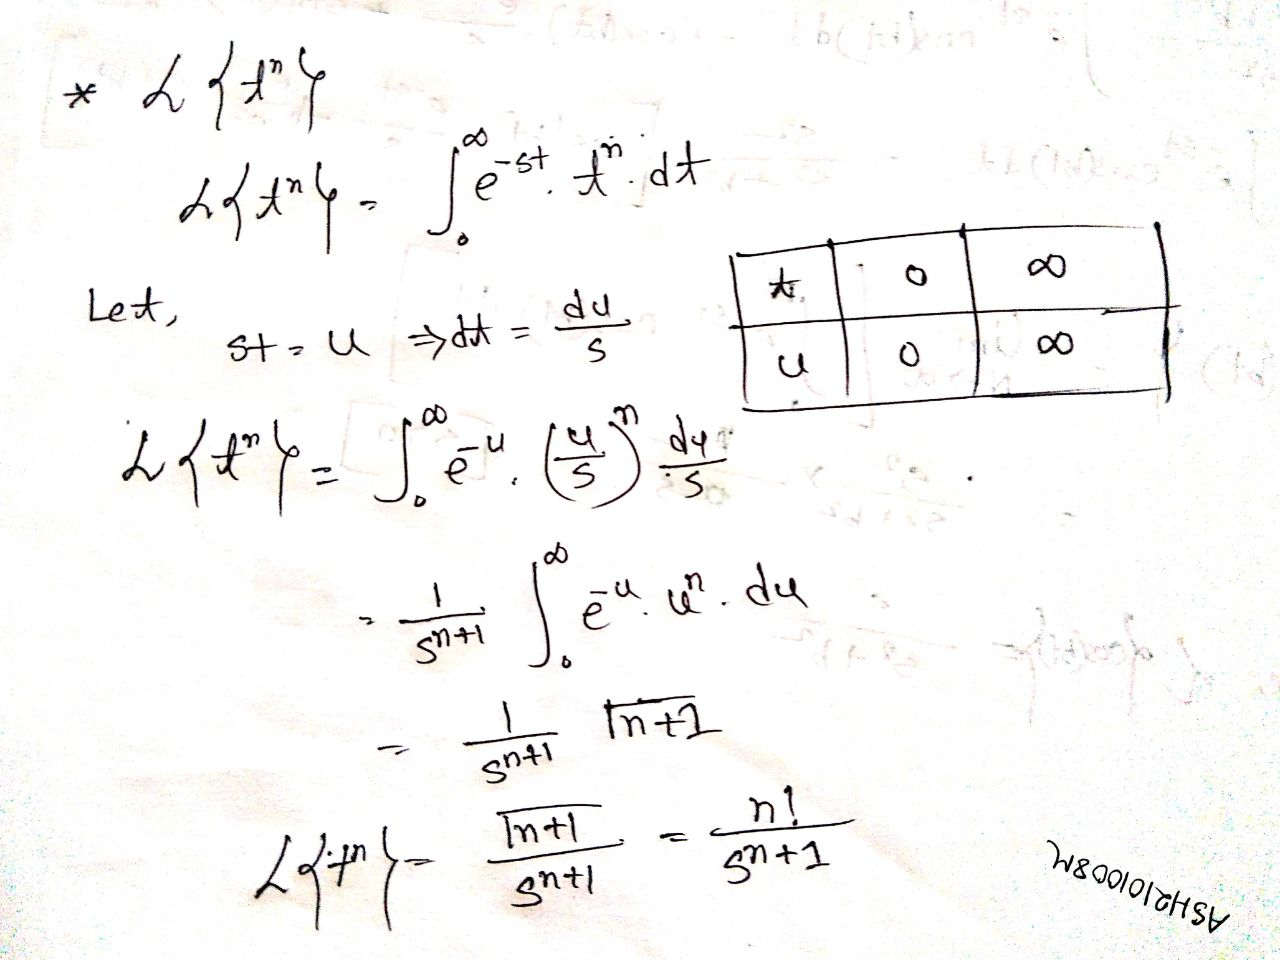 * ℒ{tⁿ}
ℒ{tⁿ} = ∫₀^∞ e^{-st} · tⁿ · dt
Let,
st = u ⇒ dt = du/s
t 0 ∞
u 0 ∞
ℒ{tⁿ} = ∫₀^∞ e^{-u} · (u/s)ⁿ du/s
= 1/s^{n+1} ∫₀^∞ e^{-u} · uⁿ · du
= 1/s^{n+1} Γn+1
ℒ{tⁿ} = Γn+1/s^{n+1} = n!/s^{n+1}
ASH2101008M